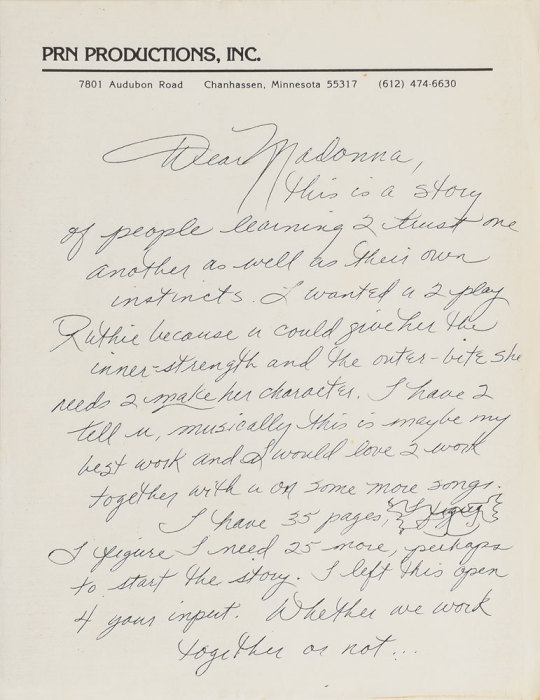 PRN PRODUCTIONS, INC.
7801 Audubon Road Chanhassen, Minnesota 55317 (612) 474-6630
Dear Madonna,
This is a story
of people learning 2 trust one
another as well as their own
instincts. I wanted u 2 play
Ruthie because u could give her the
inner-strength and the outer-bite she
needs 2 make her character. I have 2
tell u, musically this is maybe my
best work and I would love 2 work
together with u on some more songs.
I have 35 pages, I figure
I figure I need 25 more, perhaps
to start the story. I left this open
4 your input. Whether we work
together or not...